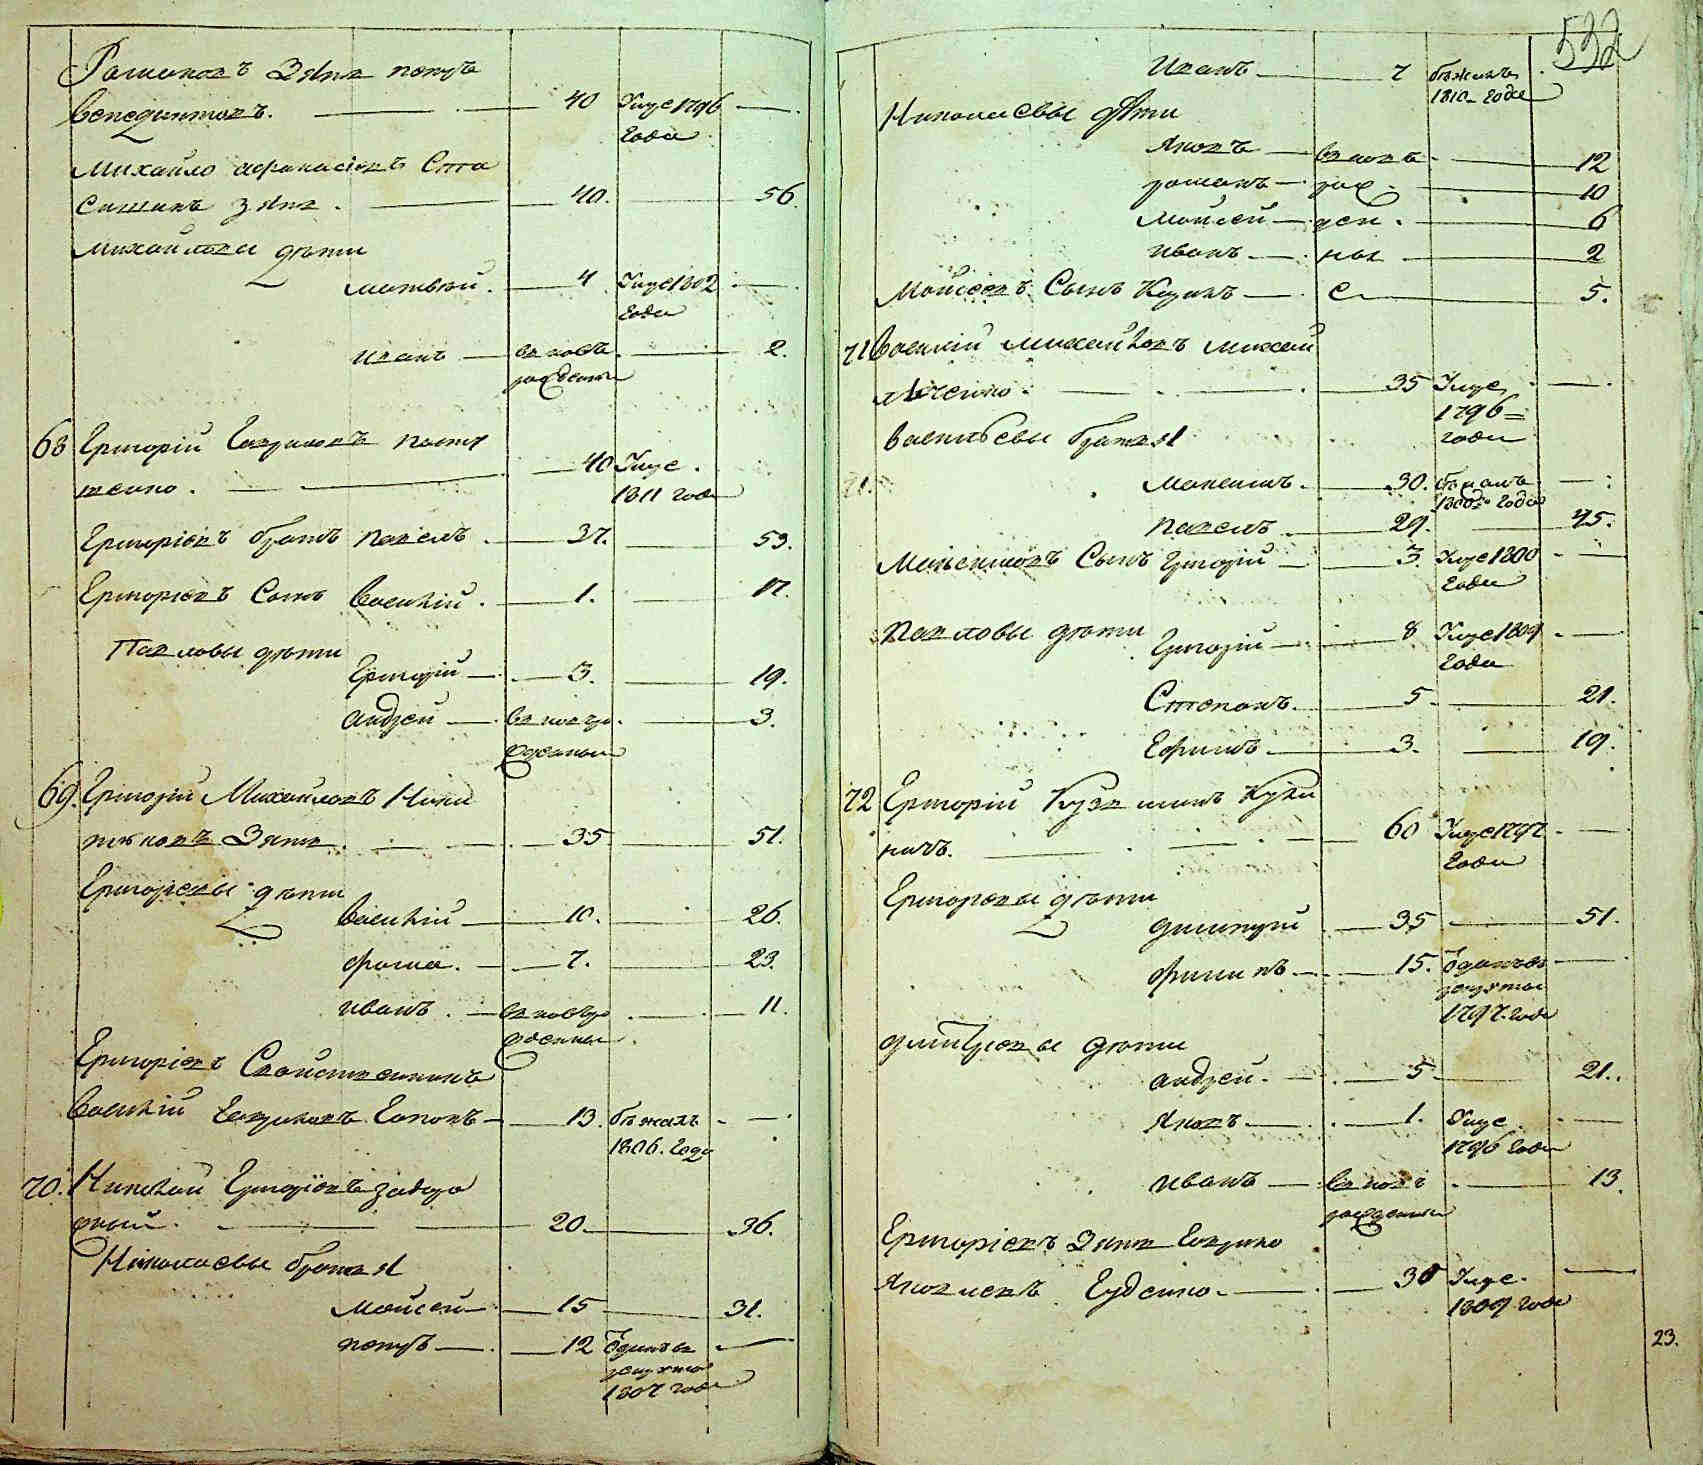 Романовъ Зять петръ
венедиктовъ. 40 Умре 1796
года
Михайло афанасіевъ Ста
сишинъ зять. 40. 56.
Михайловы дѣти
матвѣй. 4 Умре 1802
года
иванъ вновь 2.
рожденны
68 Григорій Гавриловъ
40 Умре
1811 года
Григоріевъ братъ павелъ. 37. 53.
Григоріевъ Сынъ василій. 1. 17.
Павловы дѣти
Григорій 3. 19.
андрей вновь ро 3.
жденный
69. Григорій Михайловъ Ники
тюковъ Зять. 35 51.
Григорьевы дѣти
василій 10. 26.
фома. 7. 23.
иванъ. вновь ро 11.
жденны
Григоріевъ Свойственникъ
василій Гавриловъ 13. бѣжалъ
1806. Года
70. Николай Григоріевъ
20. 36.
Николаевы братья
мойсей 15 31.
петръ 12 Отданъ в
рекруты
1807 года
532
Иванъ 7 бѣжалъ
1810 года
Николаевы дѣти
Яковъ вновь 12
романъ рож 10
мойсей ден 6
иванъ ны 2
Мойсеевъ Сынъ 5.
71 василій михайловъ михай
личенко. 35 Умре
1796
года
васильевы братья
максимъ. 30. бѣжалъ
года
павелъ 29. 45.
Максимовъ Сынъ Григорій 3. Умре 1800
года
Павловы дѣти
Григорій 8 Умре 1809
года
Степанъ. 5. 21.
Ефимъ 3. 19.
72 Григорій Кузь минъ
60 Умре 1797
года
Григорьевы дѣти
дмитрій 35 51.
филипъ 15. Отданъ в
рекруты
1797. года
дмитріевы дѣти
андрей. 5 21.
Яковъ 1. Умре
1796 года
иванъ вновь 13.
рожденны
Григоріевъ Зять
Яковлевъ 30 Умре
1809 года
23.